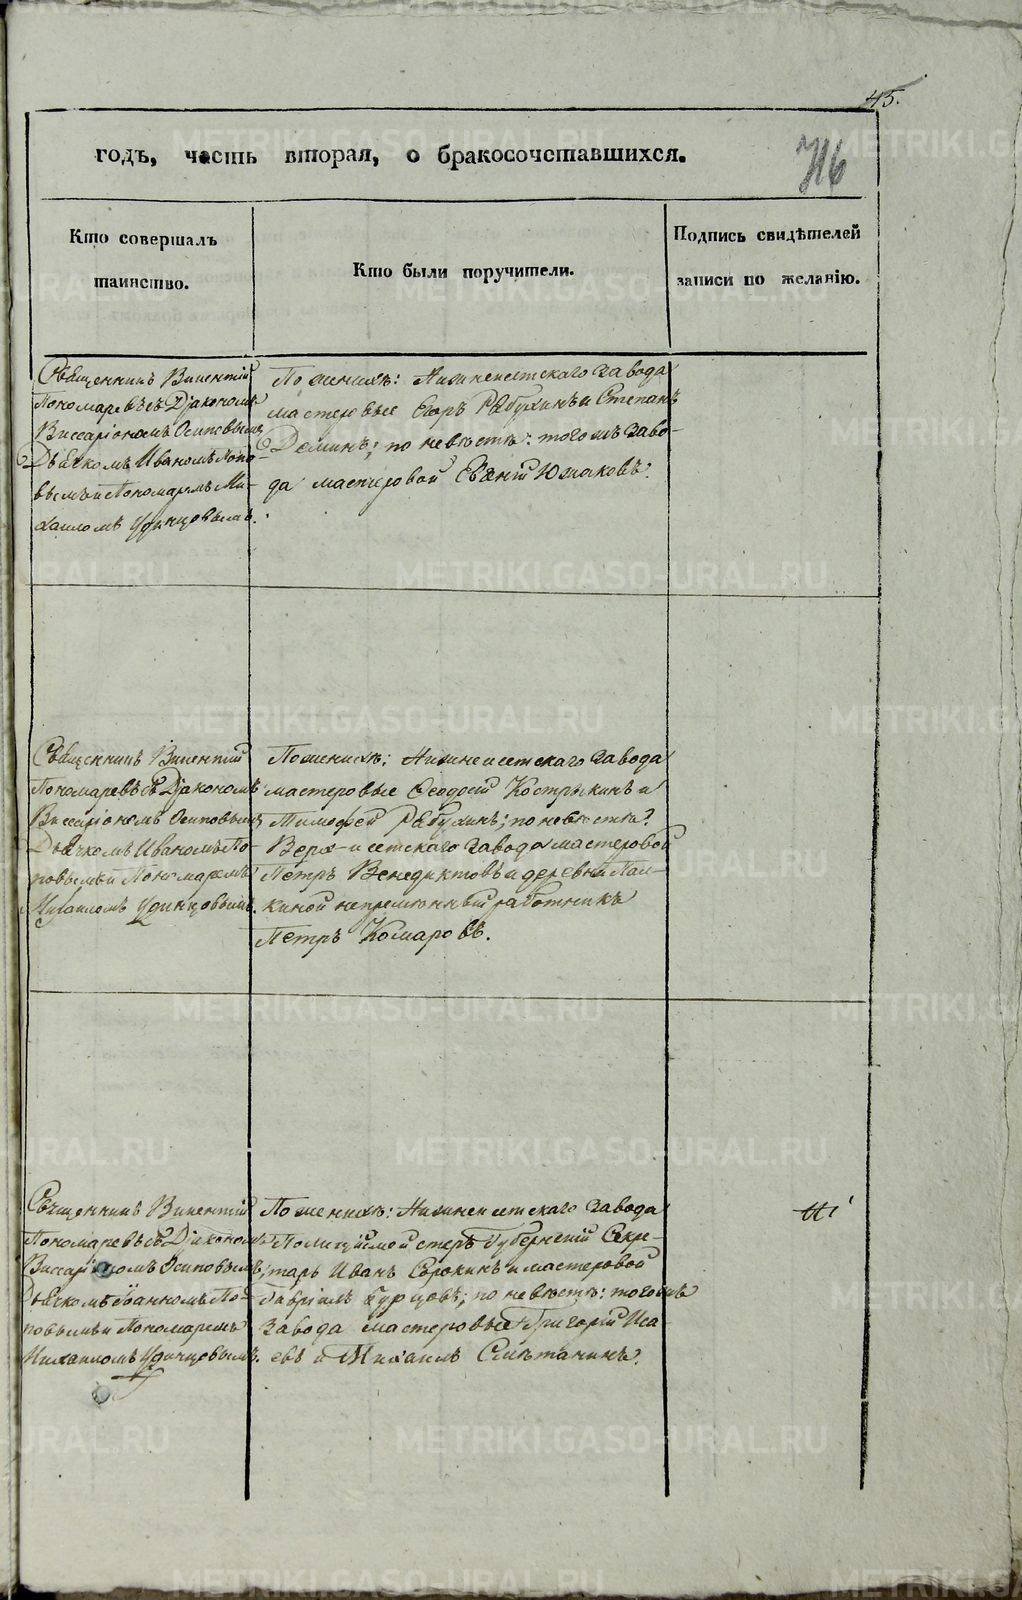 45.
годъ, часть вторая, о бракосочетавшихся.
716
Кто совершалъ
таинство.
Кто были поручители.
Подпись свидѣтелей
записи по желанію.
Священникъ Викентій
Пономаревъ съ Діакономъ
Виссаріономъ Осиповымъ
Дьячкомъ Иваномъ Попо-
вымъ и Пономаремъ Ми-
хаиломъ Удинцовымъ.
По женихѣ: Нижнеисетскаго завода
мастеровые Егоръ Рябухинъ и Степанъ
Деминъ; по невѣстѣ: тогожъ заво-
да мастеровой Евгеній Южаковъ.
Священникъ Викентій
Пономаревъ съ Діакономъ
Виссаріономъ Осиповымъ
Дьячкомъ Иваномъ По-
повымъ и Пономаремъ
Михаиломъ Удинцовымъ.
По женихѣ: Нижнеисетскаго завода
мастеровые Ѳеодосій Кострикинъ и
Тимофей Рябухинъ; по невѣстѣ:
Верх-исетскаго завода мастеровой
Петръ Венедиктовъ и деревни Пал-
киной непремѣнный работникъ
Петръ Комаровъ.
Священникъ Викентій
Пономаревъ съ Діакономъ
Виссаріономъ Осиповымъ,
Дьячкомъ Іоанномъ По-
повымъ и Пономаремъ
Михаиломъ Удинцовымъ.
По женихѣ: Нижнеисетскаго завода
Полиціймейстеръ Губернскій Секре-
тарь Иванъ Сорокинъ и мастеровой
Гавріилъ Бурцовъ; по невѣстѣ: тогожъ
завода мастеровые Григорій Иса-
евъ и Михаилъ Смѣтанинъ.
METRIKI.GASO-URAL.RU